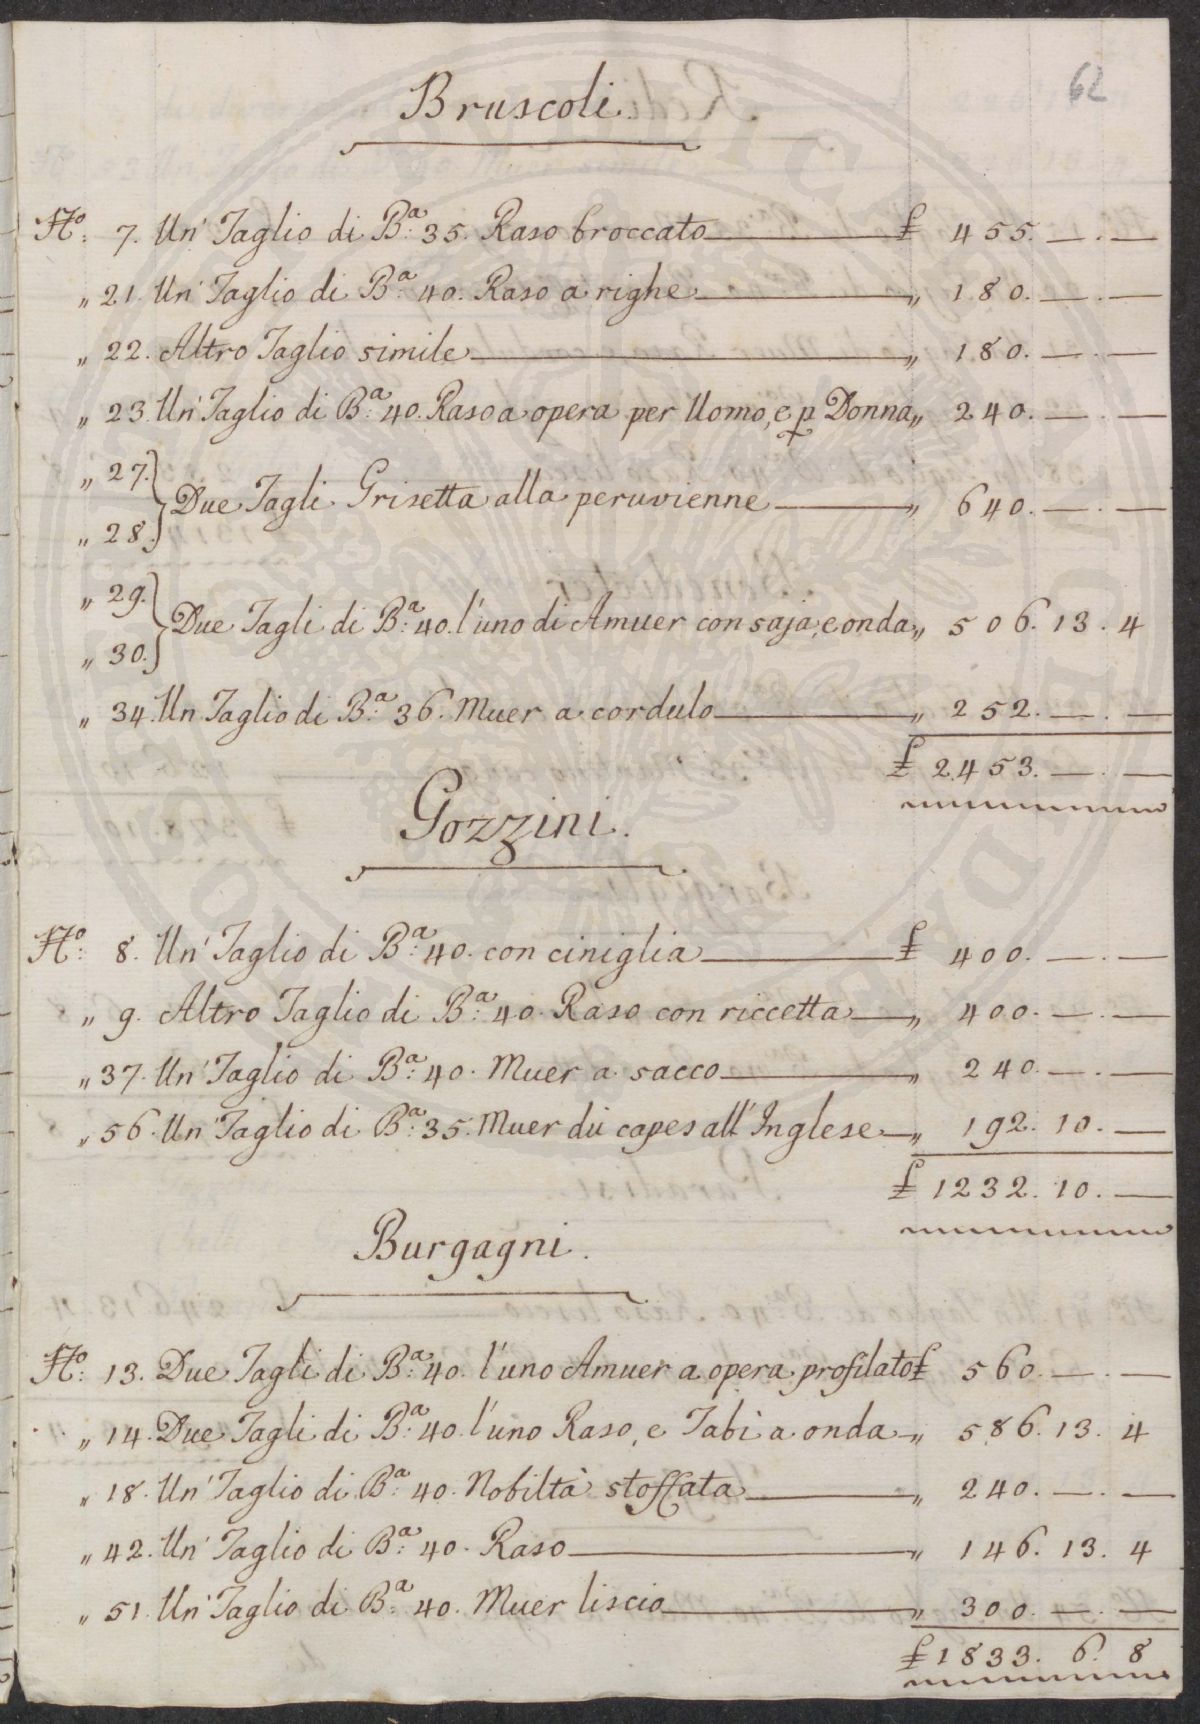 62
Bruscoli.
N.º 7. Un' Taglio di B.ª 35. Raso broccato £ 455. — . —
" 21. Un' Taglio di B.ª 40. Raso a righe " 180. — . —
" 22. Altro Taglio simile " 180. — . —
" 23. Un' Taglio di B.ª 40. Raso a opera per Uomo, e p Donna " 240. — . —
" 27.
" 28. } Due Tagli Grisetta alla peruvienne " 640. — . —
" 29.
" 30. } Due Tagli di B.ª 40. l'uno di Amuer con saja, e onda " 506. 13. 4
" 34. Un Taglio di B.ª 36. Muer a cordulo " 252. — . —
£ 2453. — . —
Gozzini.
N.º 8. Un' Taglio di B.ª 40. con ciniglia £ 400. — . —
" 9. Altro Taglio di B.ª 40. Raso con riccetta " 400. — . —
" 37. Un' Taglio di B.ª 40. Muer a sacco " 240. — . —
" 56. Un' Taglio di B.ª 35. Muer du capes all' Inglese " 192. 10. —
£ 1232. 10. —
Burgagni.
N.º 13. Due Tagli di B.ª 40. l'uno Amuer a opera profilato £ 560. — . —
" 14. Due Tagli di B.ª 40. l'uno Raso, e Tabì a onda " 586. 13. 4
" 18. Un' Taglio di B.ª 40. Nobiltà stoffata " 240. — . —
" 42. Un' Taglio di B.ª 40. Raso " 146. 13. 4
" 51. Un' Taglio di B.ª 40. Muer liscio " 300. — . —
£ 1833. 6. 8